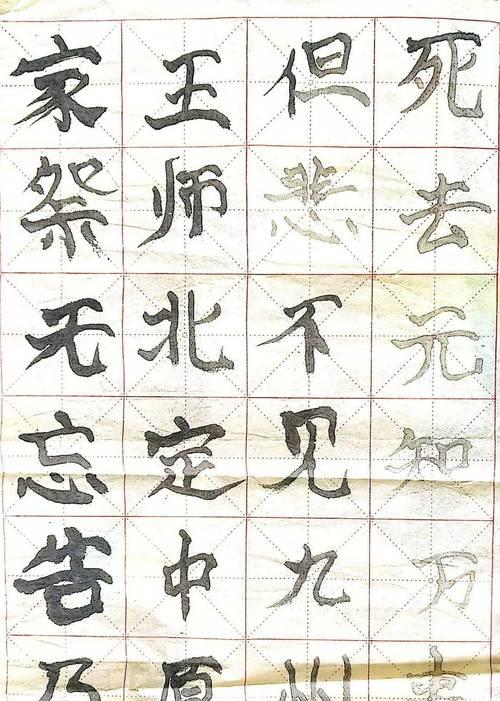 死去元知万事
但悲不见九州
王师北定中原
家祭无忘告乃